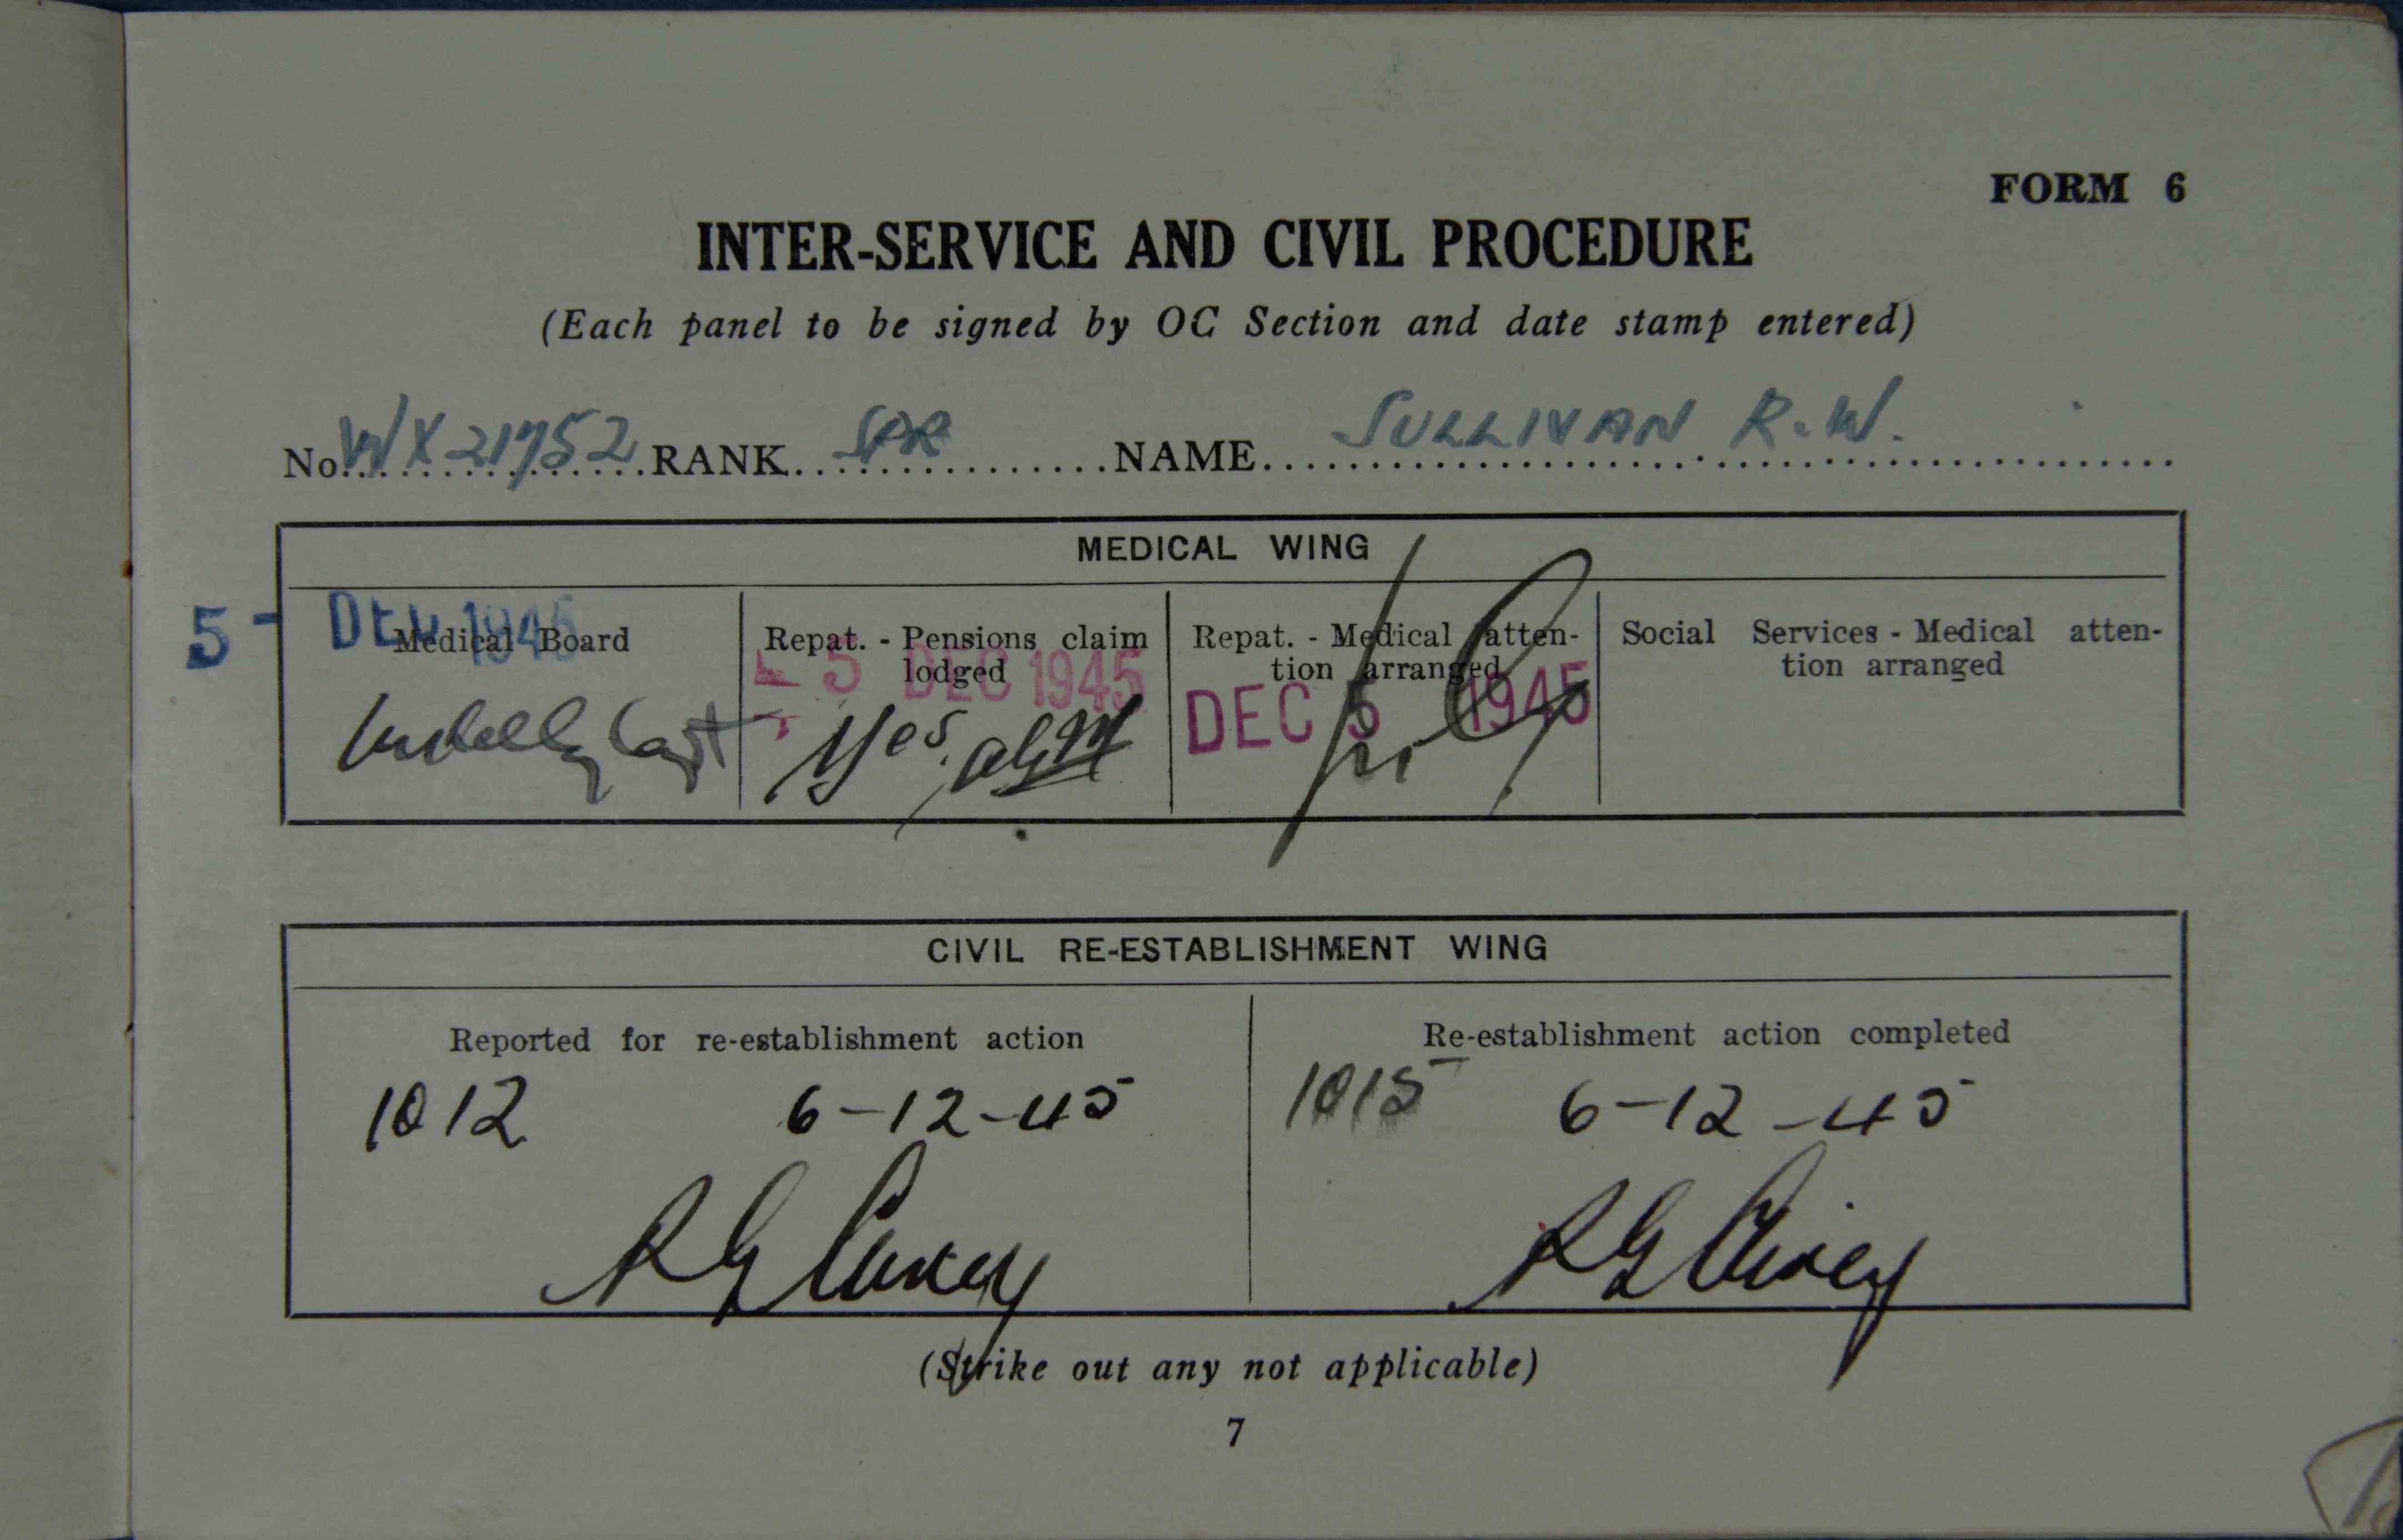 FORM 6
INTER-SERVICE AND CIVIL PROCEDURE
(Each panel to be signed by OC Section and date stamp entered)
No. WX21752 RANK SPR NAME SULLIVAN R.W.
MEDICAL WING
5 - DEC 1945
Medical Board
Capt
Repat. - Pensions claim
lodged
- 5 DEC 1945
Yes.
Repat. - Medical atten-
tion arranged
DEC 5 1945
nil
Social Services - Medical atten-
tion arranged
CIVIL RE-ESTABLISHMENT WING
Reported for re-establishment action
1012 6-12-45
Re-establishment action completed
1015 6-12-45
(Strike out any not applicable)
7